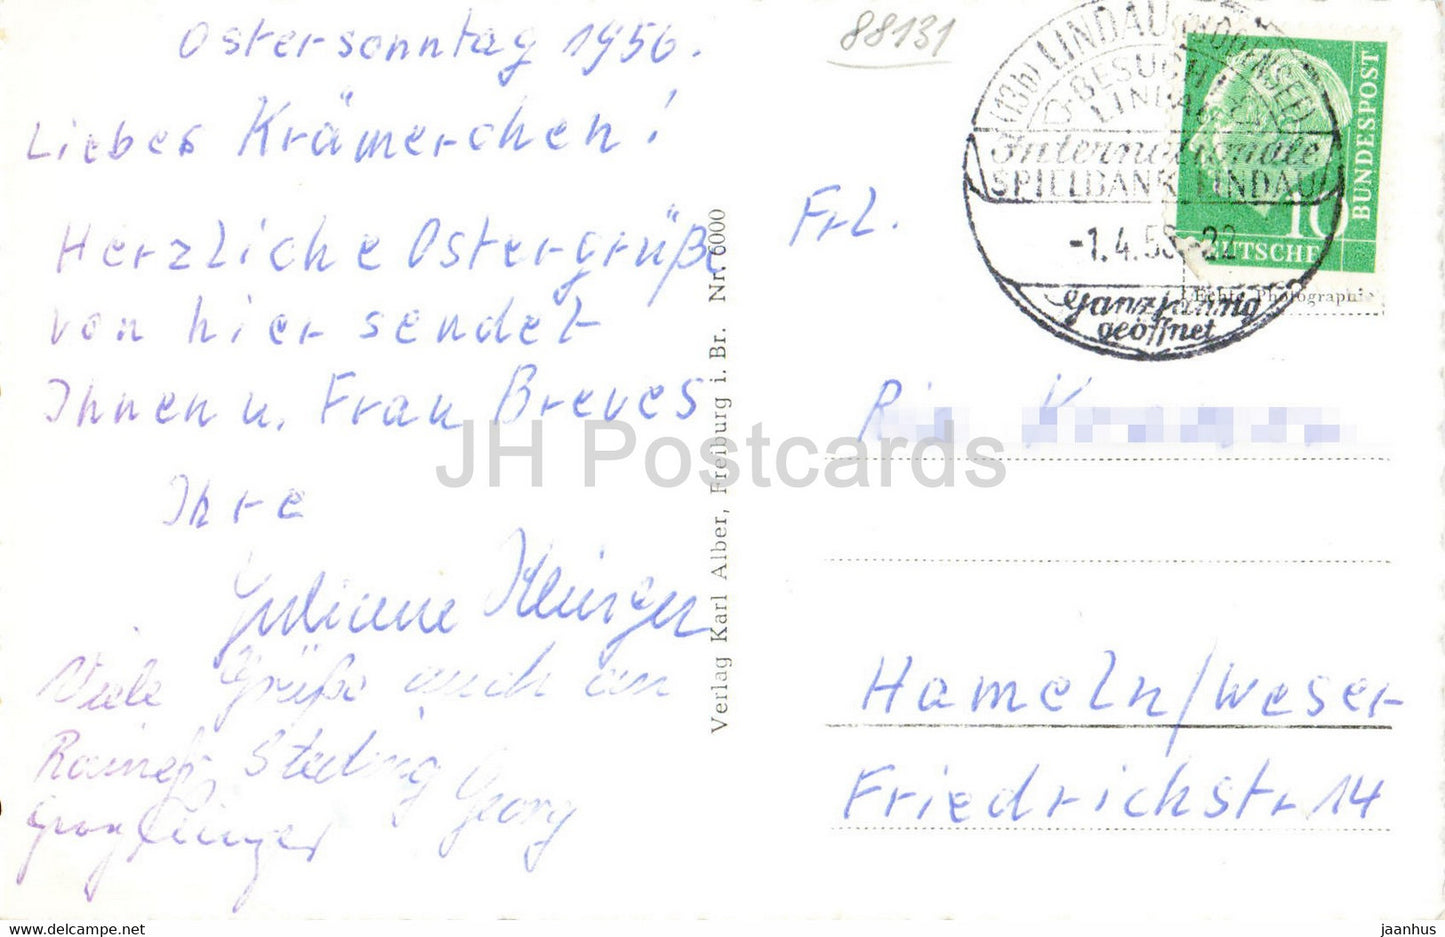 Ostersonntag 1956.
Liebes Krämerchen!
Herzliche Ostergrüße
von hier sendet
Ihnen u. Frau Breves
Ihre
Juliane Klinger
Viele Grüße auch an
Rainer, Georg
Verlag Karl Alber, Freiburg i. Br. Nr. 6000
88131
(13b) LINDAU (BODENSEE)
BESUCH
LINDAU
Internationale
SPIELBANK LINDAU
-1.4.56-22
Ganzjährig
geöffnet
10
DEUTSCHE
BUNDESPOST
Echte Photographie
Frl.
Hameln/Weser
Friedrichstr 14
JH Postcards
hipstamp.com/store/jaanhus